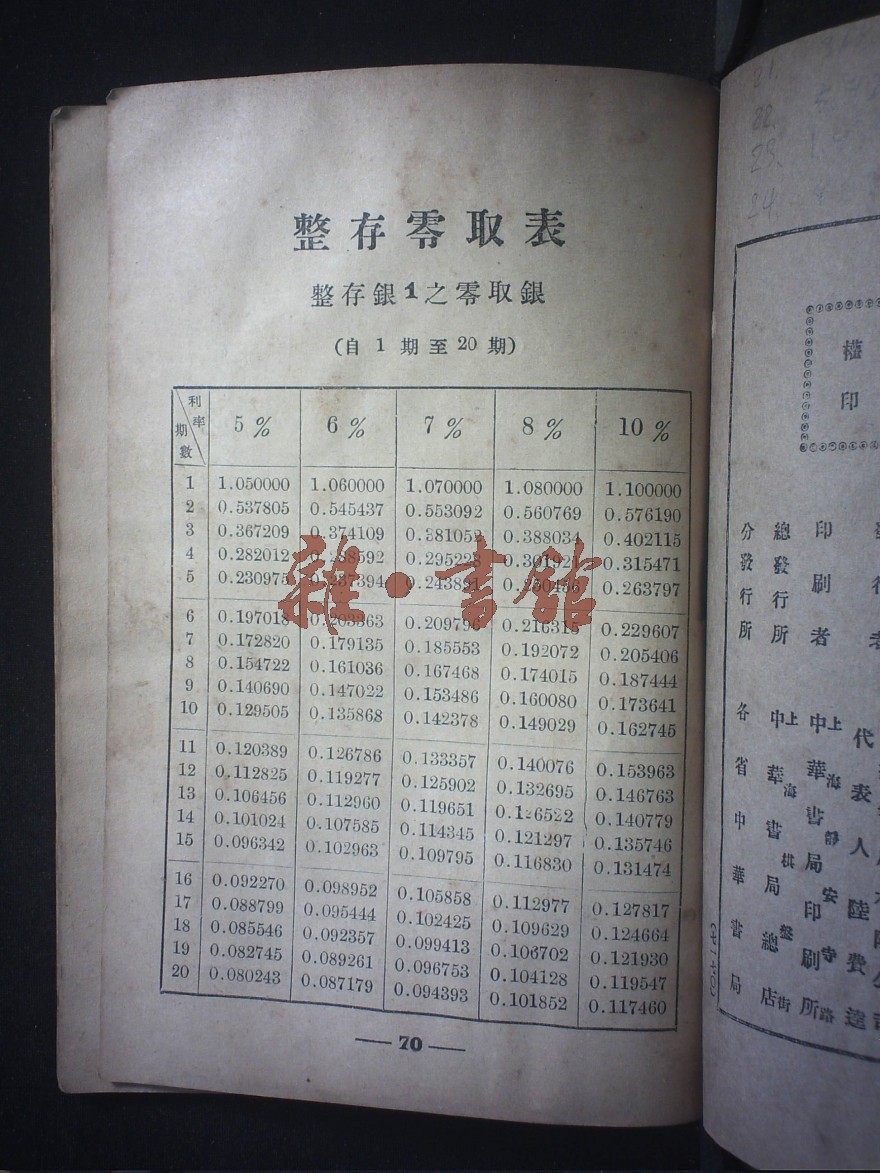 整存零取表
整存銀1之零取銀
(自1期至20期)
利率 期數 5% 6% 7% 8% 10%
1 1.050000 1.060000 1.070000 1.080000 1.100000
2 0.537805 0.545437 0.553092 0.560769 0.576190
3 0.367209 0.374109 0.381052 0.388034 0.402115
4 0.282012 0.295228 0.315471
5 0.230975 0.237394 0.243891 0.250456 0.263797
6 0.197018 0.203363 0.209796 0.216315 0.229607
7 0.172820 0.179135 0.185553 0.192072 0.205406
8 0.154722 0.161036 0.167468 0.174015 0.187444
9 0.140690 0.147022 0.153486 0.160080 0.173641
10 0.129505 0.135868 0.142378 0.149029 0.162745
11 0.120389 0.126786 0.133357 0.140076 0.153963
12 0.112825 0.119277 0.125902 0.132695 0.146763
13 0.106456 0.112960 0.119651 0.126522 0.140779
14 0.101024 0.107585 0.114345 0.121297 0.135746
15 0.096342 0.102963 0.109795 0.116830 0.131474
16 0.092270 0.098952 0.105858 0.112977 0.127817
17 0.088799 0.095444 0.102425 0.109629 0.124664
18 0.085546 0.092357 0.099413 0.106702 0.121930
19 0.082745 0.089261 0.096753 0.104128 0.119547
20 0.080243 0.087179 0.094393 0.101852 0.117460
—70—
雜·書館
權
印
代表人陸費逵
印刷者 上海靜安寺路 中華書局印刷所
總發行所 上海棋盤街 中華書局總店
分發行所 各省中華書局